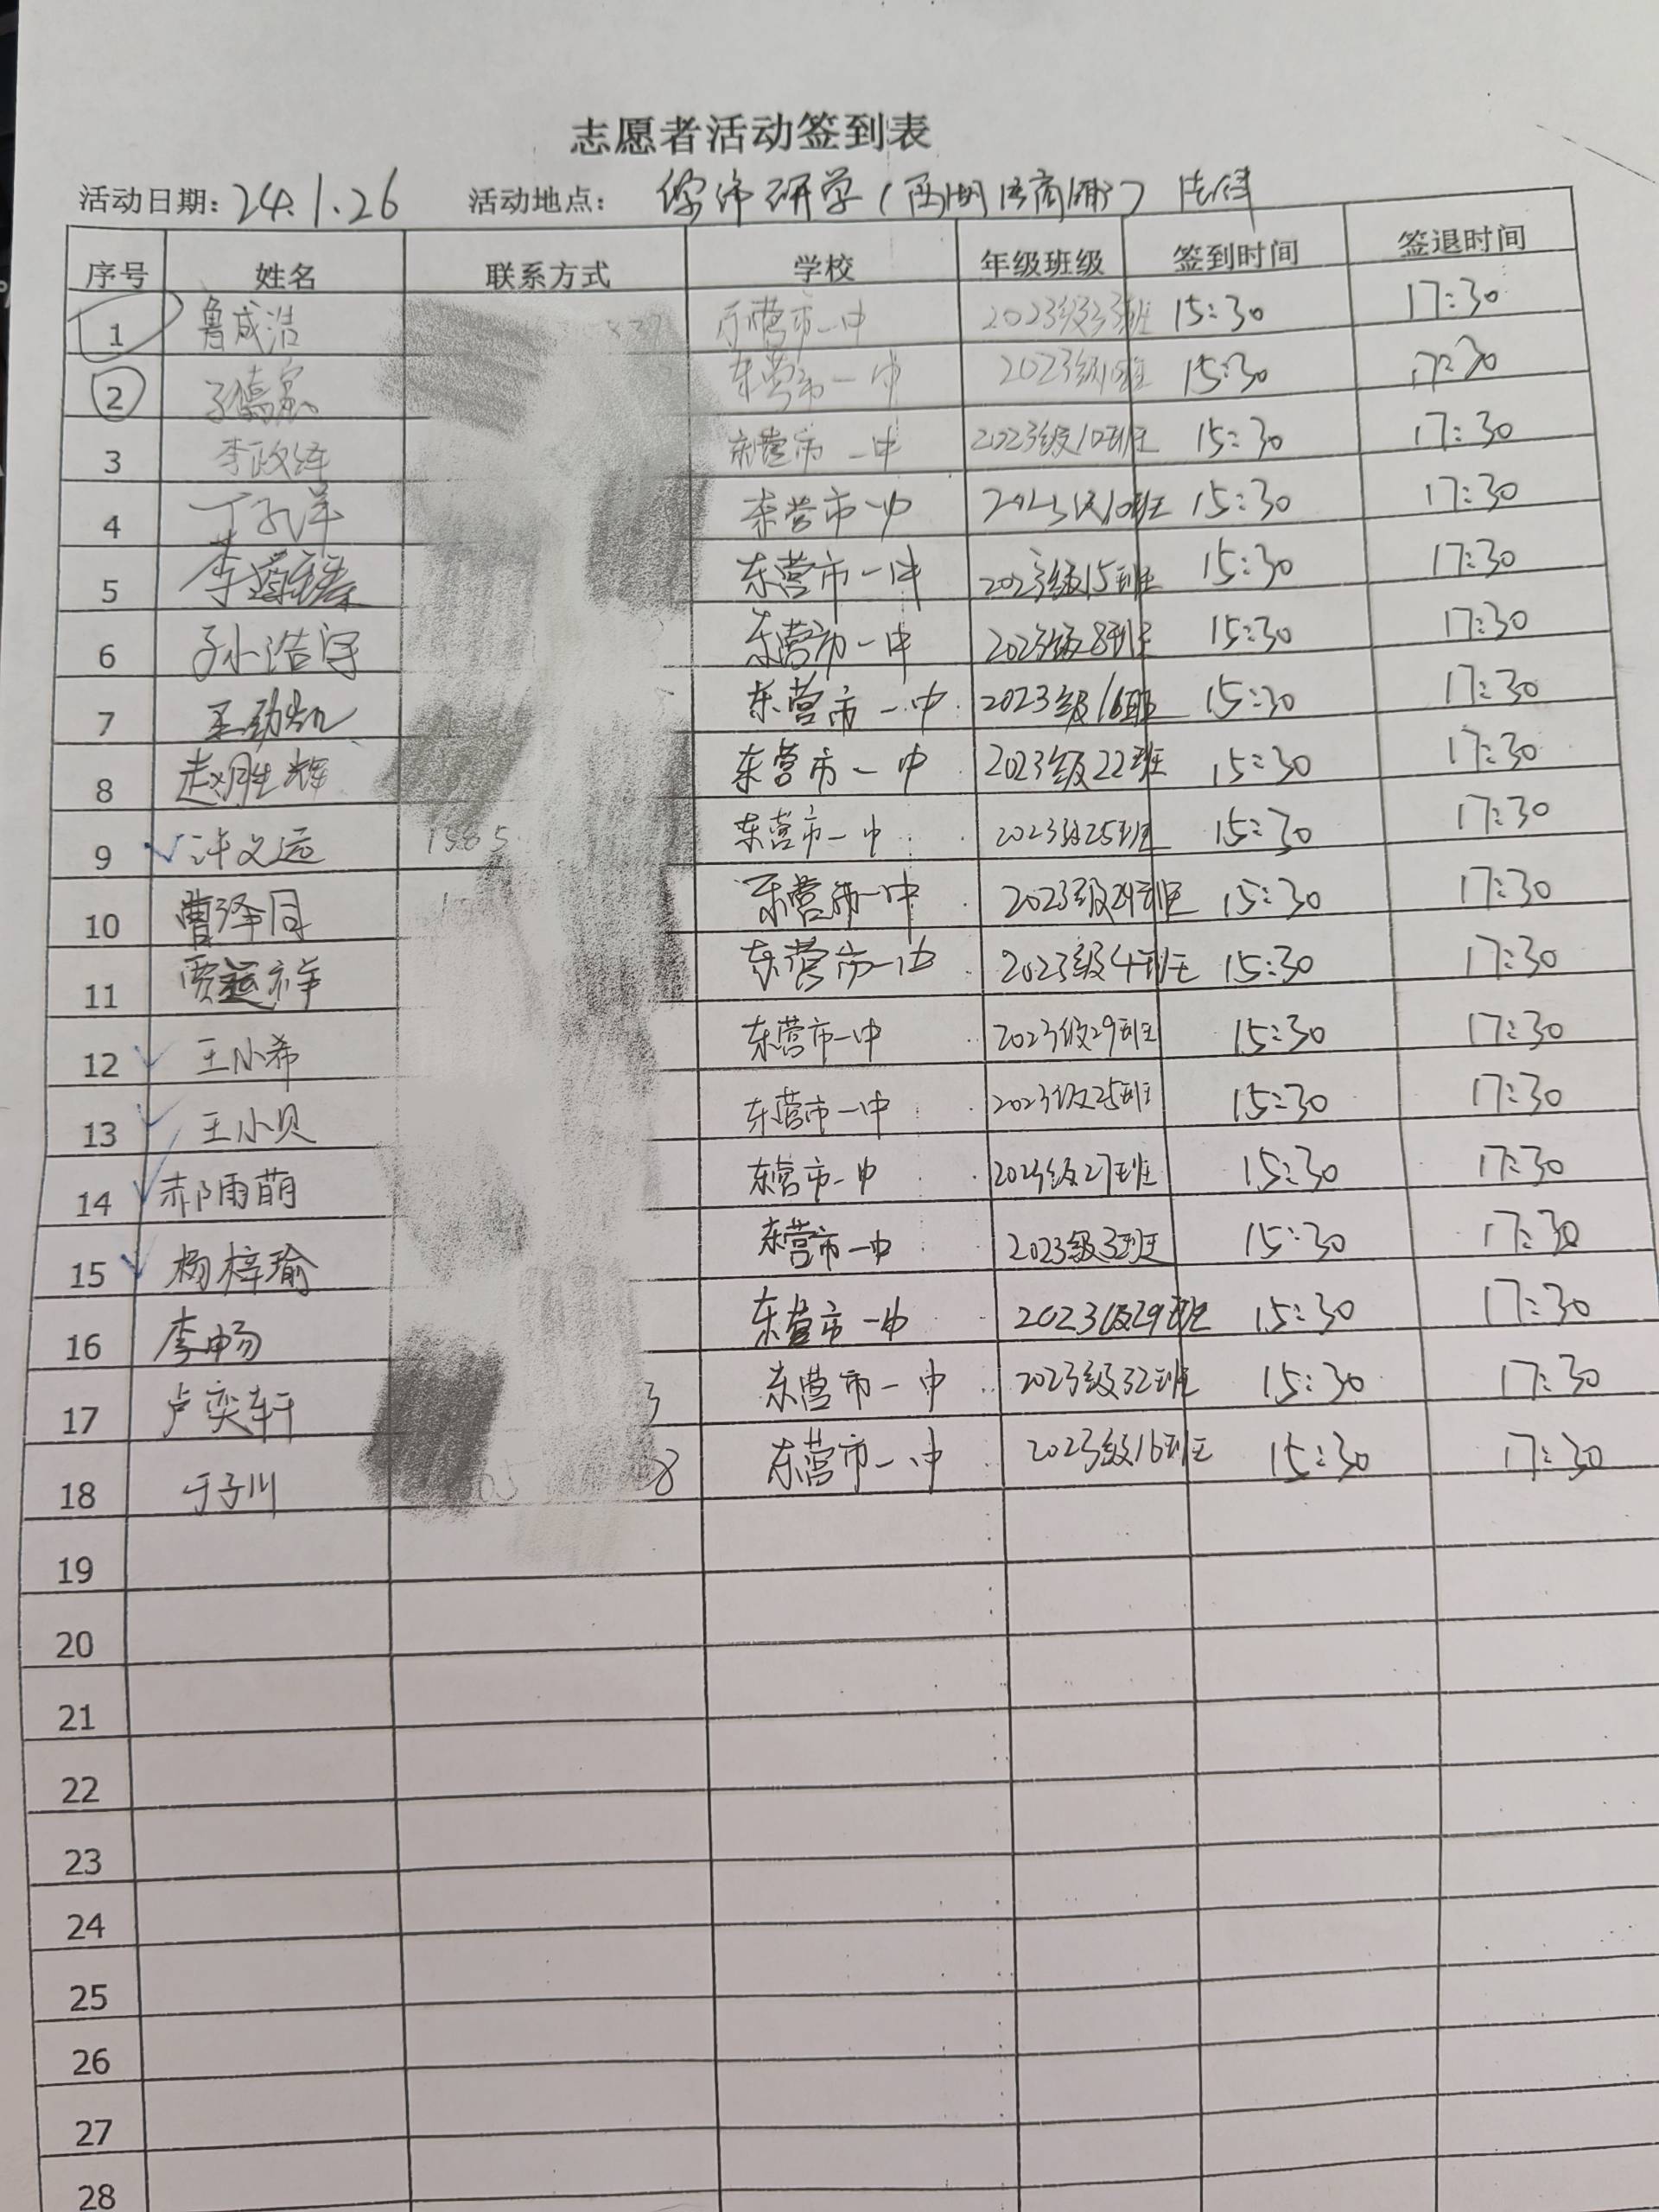 志愿者活动签到表
活动日期: 24.1.26 活动地点: 经纬研学(西湖 )
序号 姓名 联系方式 学校 年级班级 签到时间 签退时间
1 鲁成浩 东营市一中 2023级33班 15:30 17:30
2 东营市一中 2023级 15:30 17:30
3 李政泽 东营市一中 2023级10班 15:30 17:30
4 丁子洋 东营市一中 2023级10班 15:30 17:30
5 李 东营市一中 2023级15班 15:30 17:30
6 孙浩宇 东营市一中 2023级8班 15:30 17:30
7 王劲凯 东营市一中 2023级16班 15:30 17:30
8 赵胜辉 东营市一中 2023级22班 15:30 17:30
9 许文运 东营市一中 2023级25班 15:30 17:30
10 曹泽同 东营市一中 2023级29班 15:30 17:30
11 贾运祥 东营市一中 2023级4班 15:30 17:30
12 王小希 东营市一中 2023级29班 15:30 17:30
13 王小贝 东营市一中 2023级25班 15:30 17:30
14 郝雨萌 东营市一中 2023级27班 15:30 17:30
15 杨梓瑜 东营市一中 2023级3班 15:30 17:30
16 李畅 东营市一中 2023级29班 15:30 17:30
17 卢奕轩 3 东营市一中 2023级32班 15:30 17:30
18 于子川 8 东营市一中 2023级16班 15:30 17:30
19
20
21
22
23
24
25
26
27
28